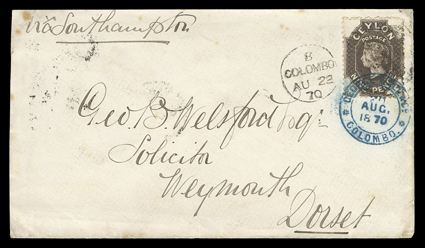 via Southampton.
CEYLON
POSTAGE
B
COLOMBO
AU 22
70
AUG.
1870
COLOMBO.
Geo. B. Welsford Esqr
Solicitor
Weymouth
Dorset